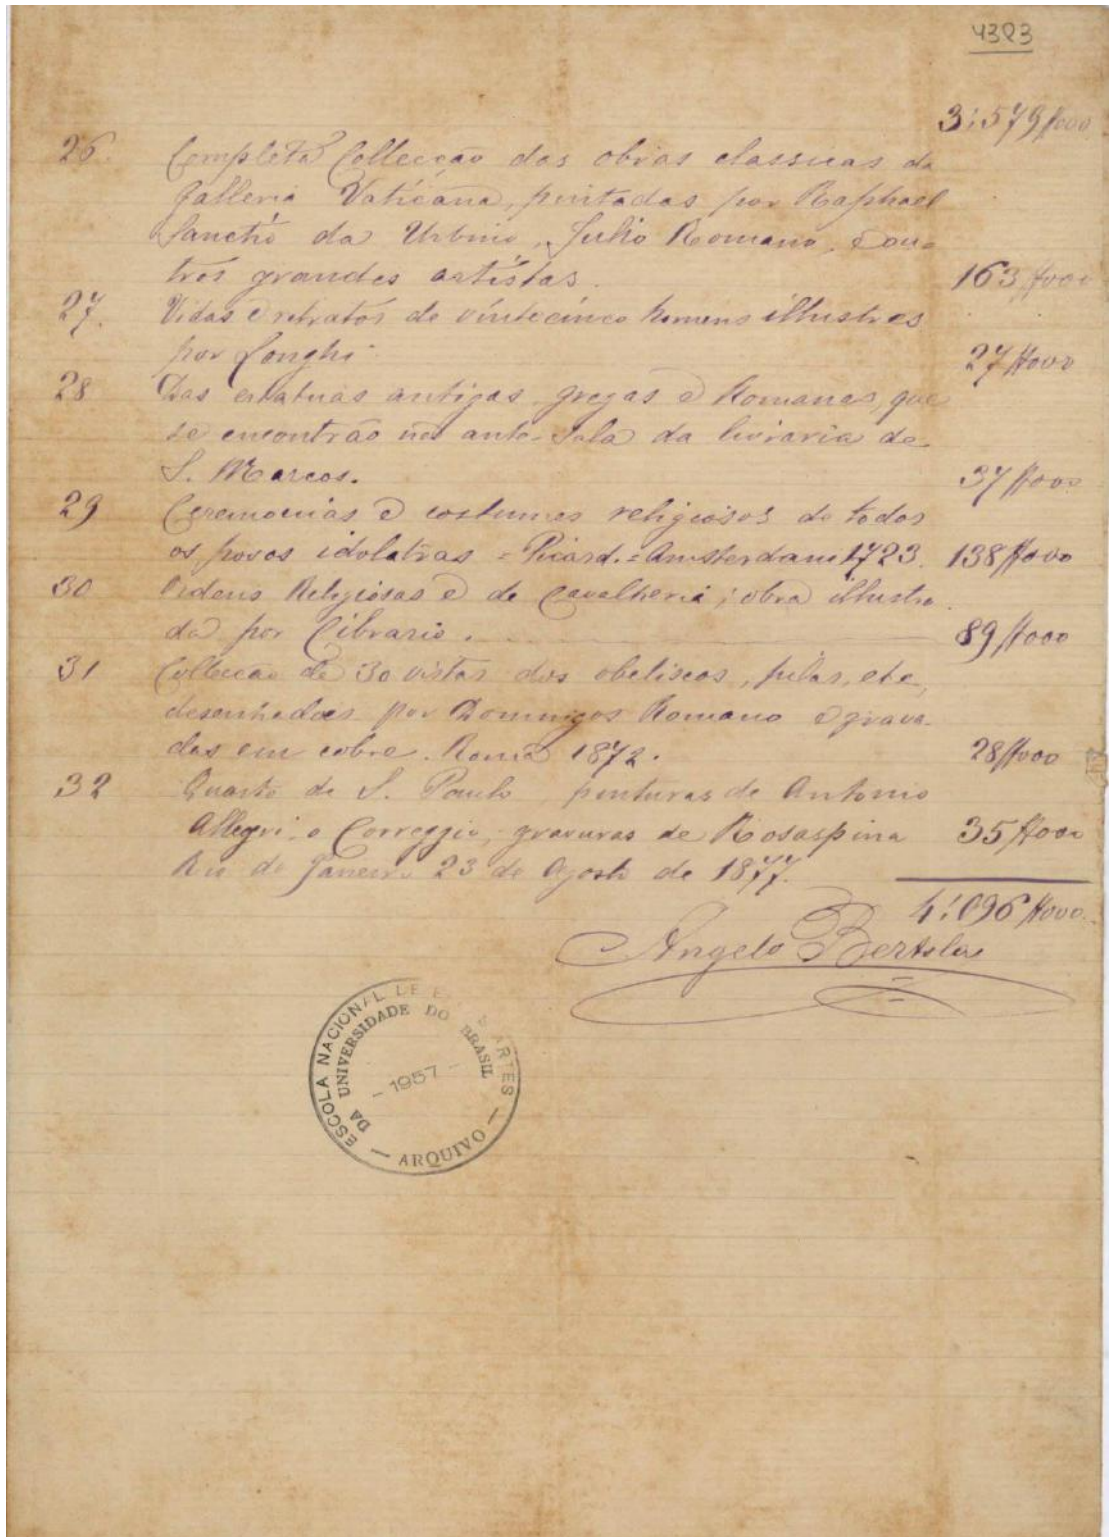 4323
3:579$000
26. Completa Collecção das obras classicas da
Galleria Vaticana, pintadas por Raphael
Sanchio da Urbino, Julio Romano, e ou-
tros grandes artistas. 163$000
27. Vidas e retratos de vintecinco homens illustres
por Longhi. 27$000
28 Das estatuas antigas gregas e Romanas, que
se encontrão na ante-sala da livraria de
S. Marcos. 37$000
29 Ceremonias e costumes religiosos de todos
os povos idolatras = Picard. = Amsterdam 1723. 138$000
30 Ordens Religiosas e de Cavalheria; obra illustra
da por Cibrario. 89$000
31 Collecção de 30 vistas dos obeliscos, pilas, etc,
desenhadas por Domingos Romano e grava-
das em cobre. Roma 1872. 28$000
32 Quarto de S. Paulo, pinturas de Antonio
Allegri o Correggio, gravuras de Rosaspina 35$000
Rio de Janeiro 23 de Agosto de 1877.
4:096$000
Angelo Bertolas
ESCOLA NACIONAL DE BELAS ARTES
DA UNIVERSIDADE DO BRASIL
- 1957 -
— ARQUIVO —